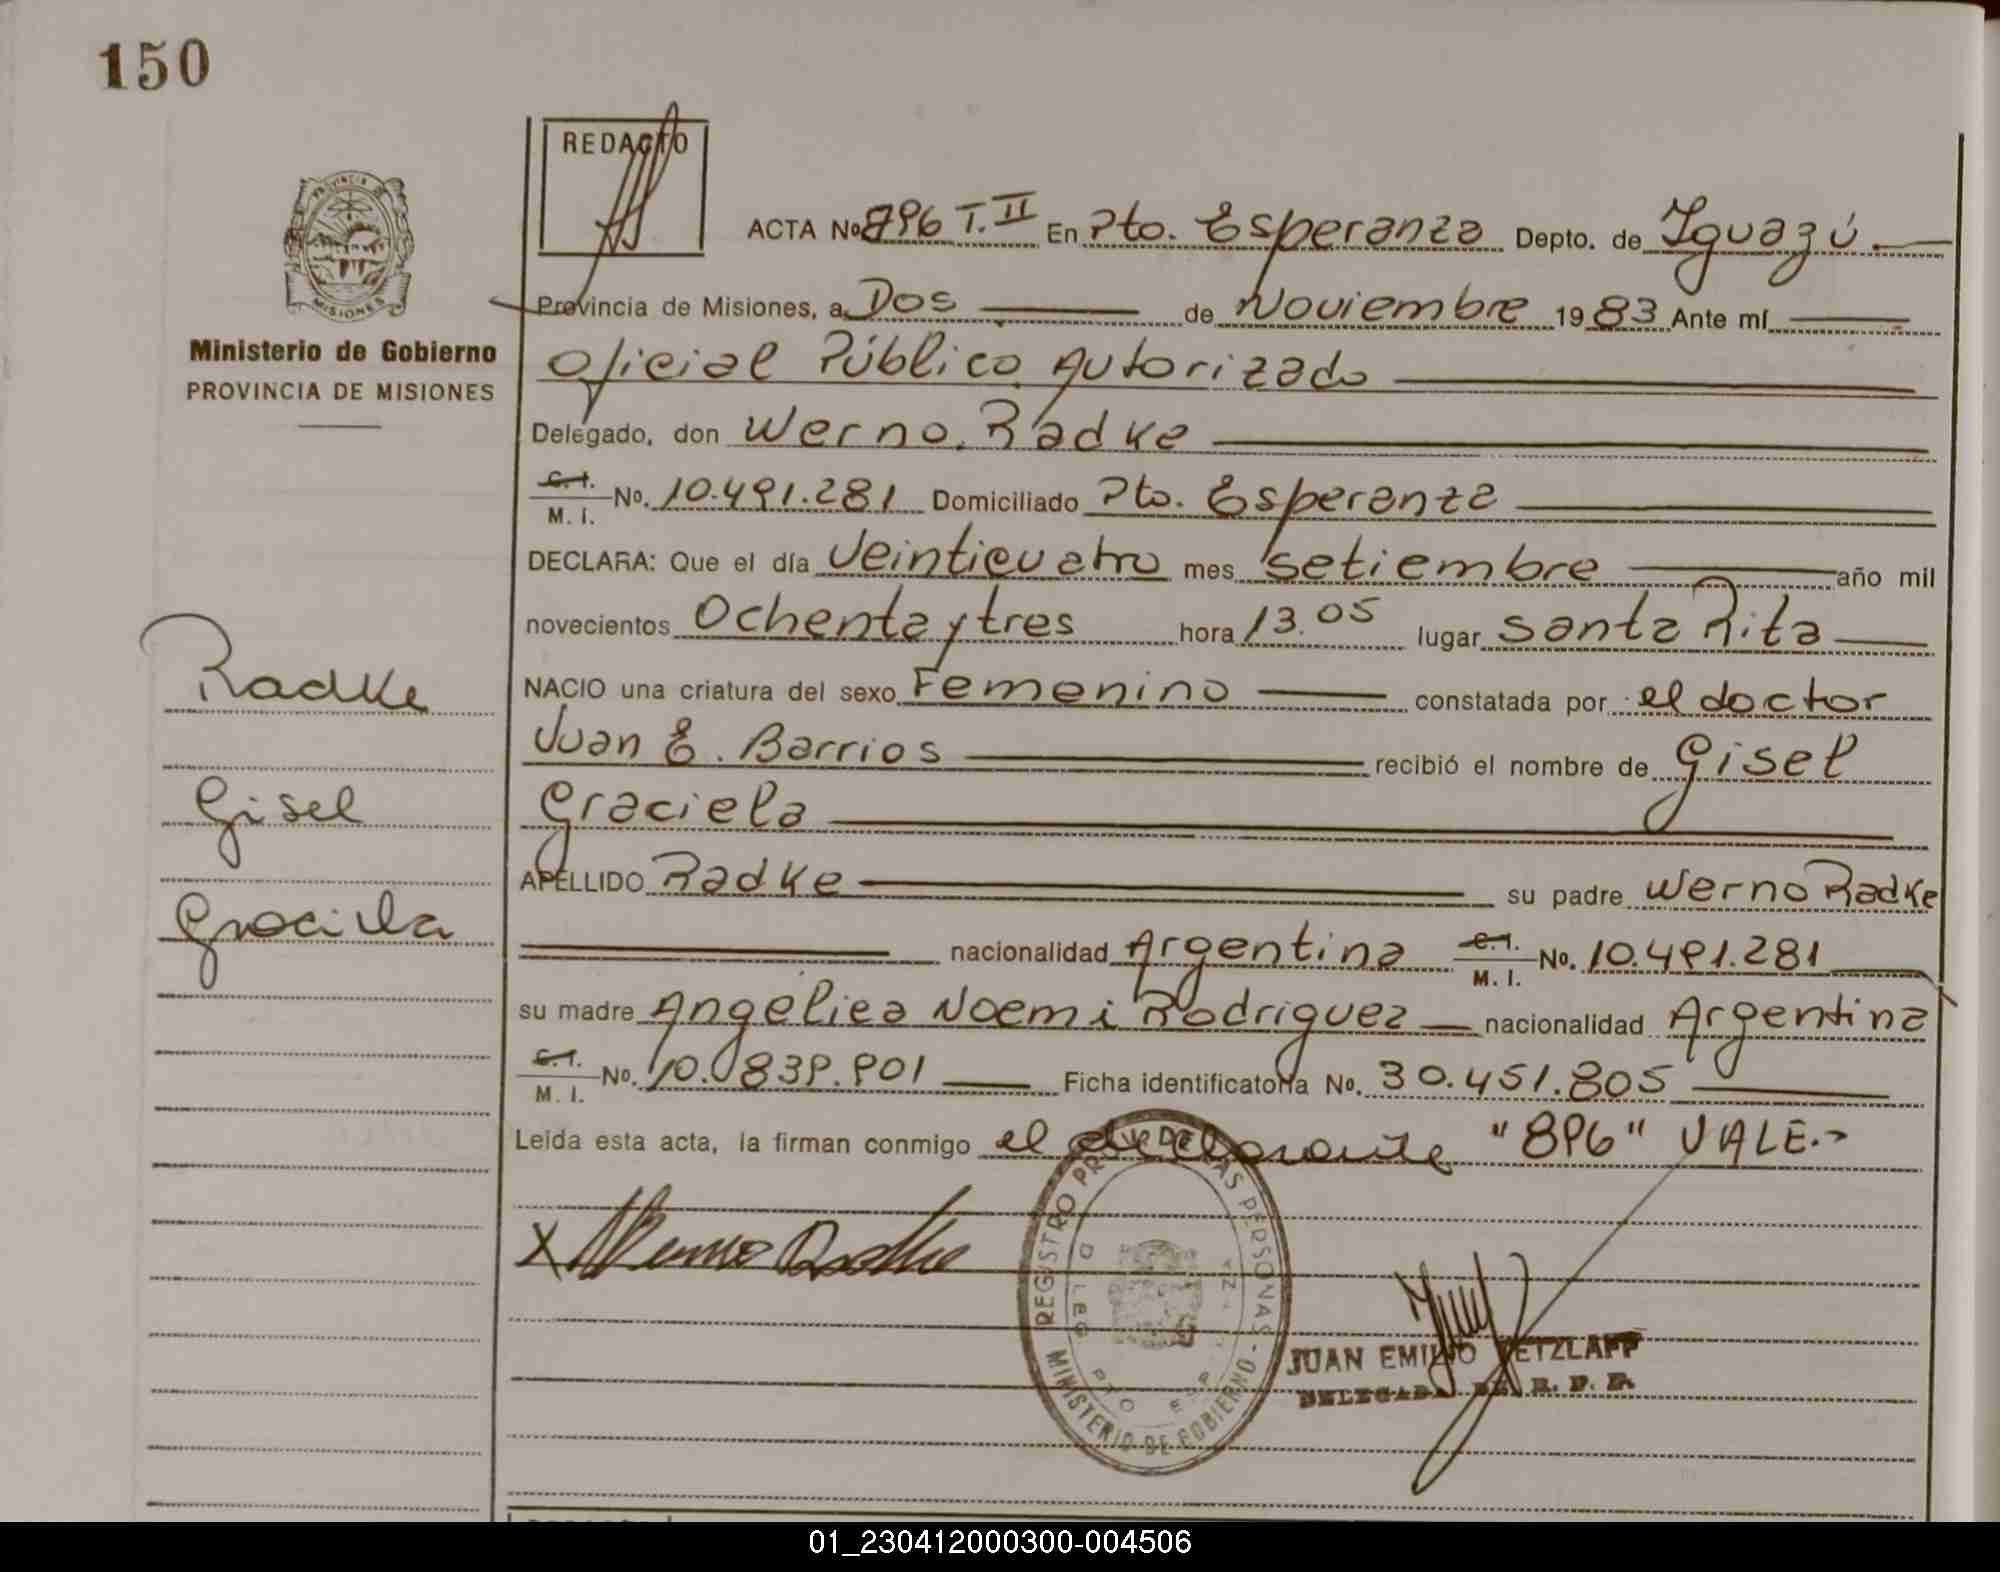 150
REDACTO
PROVINCIA DE
MISIONES
Ministerio de Gobierno
PROVINCIA DE MISIONES
ACTA No 896 T. II En Pto. Esperanza Depto. de Iguazú.
Provincia de Misiones, a Dos de Noviembre 1983 Ante mí
Oficial Público Autorizado
Delegado, don Werno Radke
C.I.
M. I. No. 10.491.281 Domiciliado Pto. Esperanza
DECLARA: Que el día Veinticuatro mes setiembre año mil
novecientos Ochenta y tres hora 13.05 lugar Santa Rita
NACIO una criatura del sexo Femenino constatada por el doctor
Juan E. Barrios recibió el nombre de Gisel
Graciela
APELLIDO Radke su padre Werno Radke
nacionalidad Argentina C.I. M. I. No. 10.491.281
su madre Angélica Noemi Rodriguez nacionalidad Argentina
C.I.
M. I. No. 10.839.901 Ficha identificatoria No. 30.451.805
Leída esta acta, la firman conmigo el declarante "896" VALE.-
Radke
Gisel
Graciela
X Werno Radke
REGISTRO PROV. DE LAS PERSONAS - MINISTERIO DE GOBIERNO -
JUAN EMILIO RETZLAFF
01_230412000300-004506